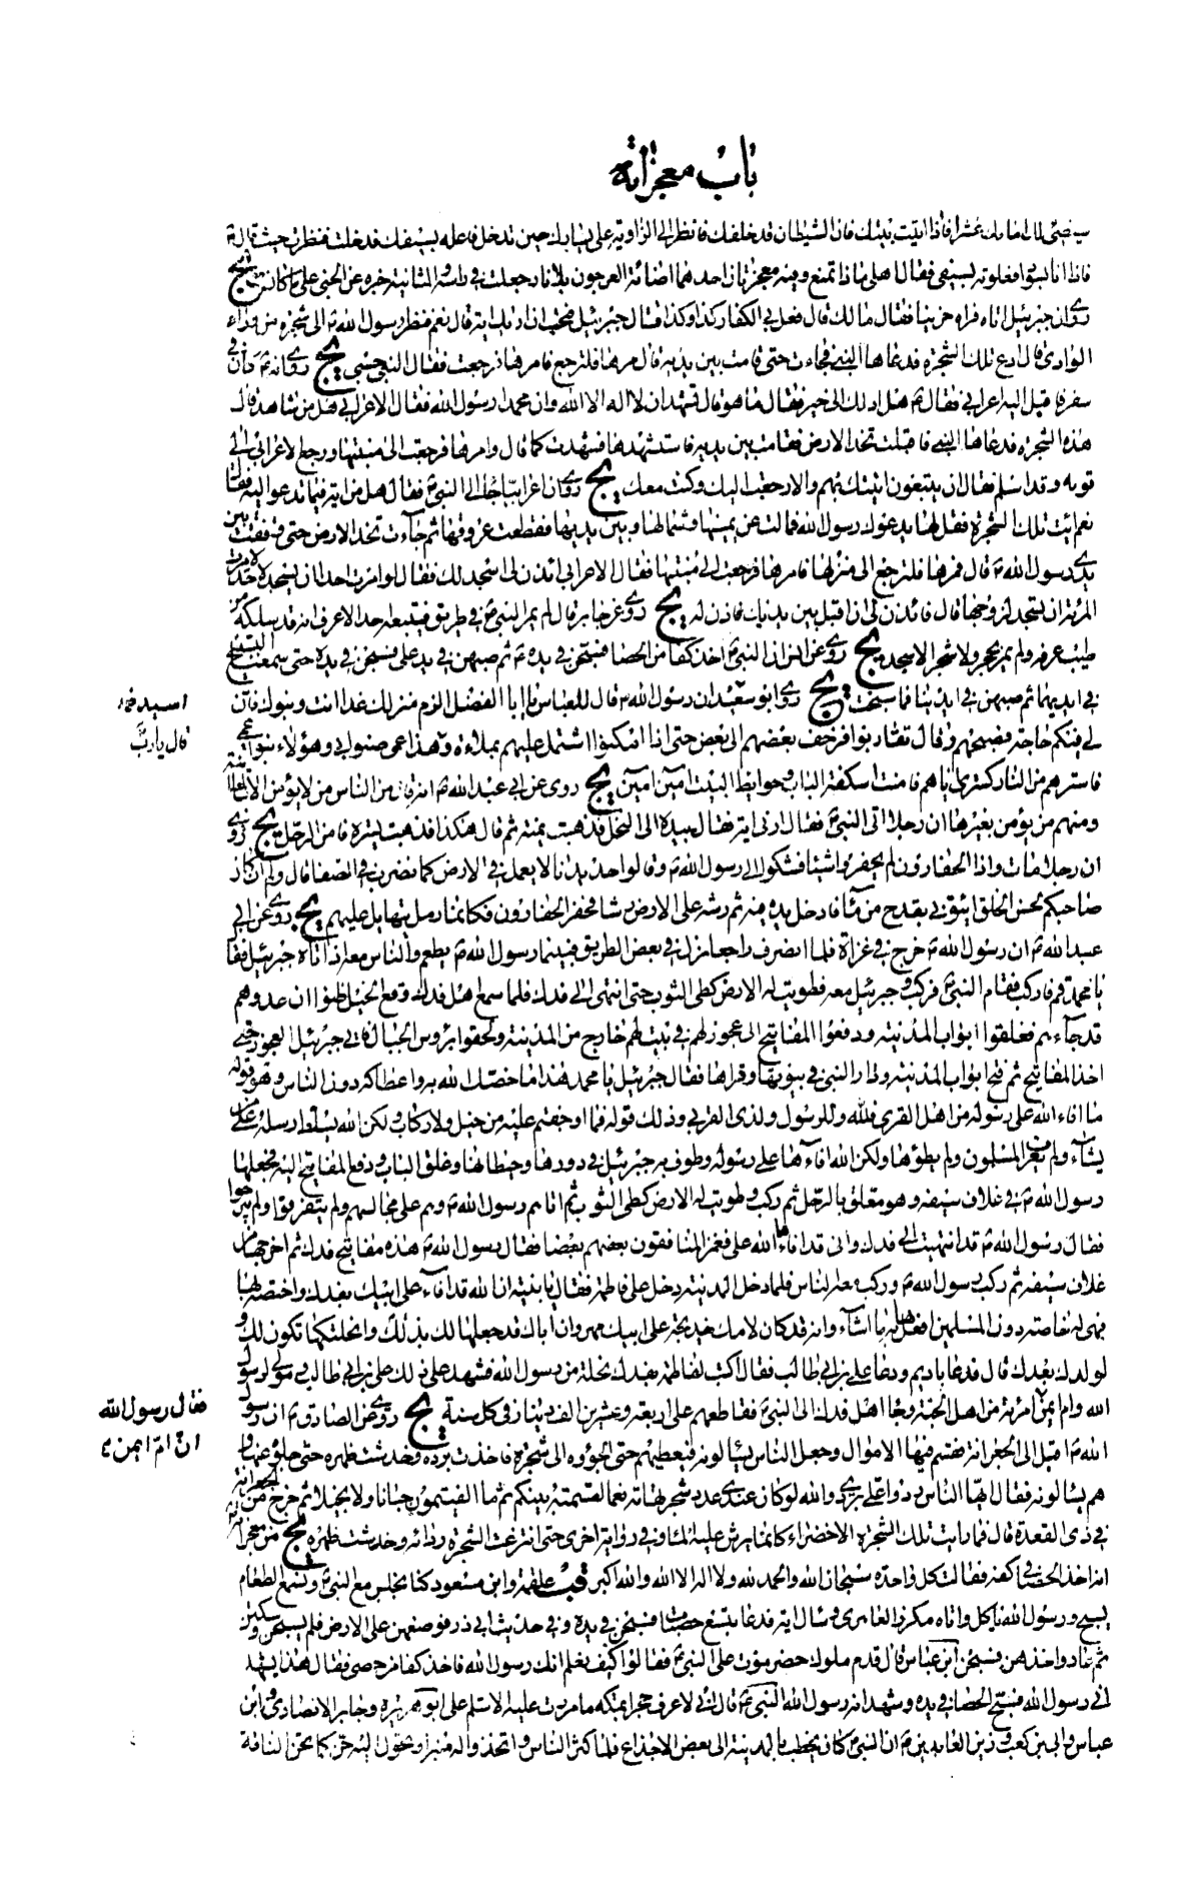 باب معجزاته
سيضئ لك امامك عشرا فاذا اتيت بيتك فان الشيطان قد خلفك فانظر الى الزاوية على يسارك حين تدخل فاعله بسيفك فدخلت فنظرت حيث قال
فاذا انا بسواد فعلوته بسيفى فقال اهلى ماذا تصنع وفيه معجزتان احدهما اضائة العرجون بلا نار جعلت فى راسه والثانية خبره عن الجنى على ما كان يج
روى ان جبرئيل اتاه فراه حزينا فقال مالك قال فعل بى الكفار كذا وكذا فقال جبرئيل فتحب ان اريك اية قال نعم فنظر رسول الله ص الى شجرة من وراء
الوادى قال ادع تلك الشجرة فدعاها النبى فجاءت حتى قامت بين يديه قال مرها فلترجع فامرها فرجعت فقال النبى حسبى يج روى انه ص كان فى
سفر فاقبل اليه اعرابى فقال ص هل ادلك الى خير فقال ما هو قال تشهد ان لا اله الا الله وان محمدا رسول الله فقال الاعرابى هل من شاهد قال
هذه الشجرة فدعاها النبى فاقبلت تخد الارض فقامت بين يديه فاستشهدها فشهدت كما قال وامرها فرجعت الى منبتها ورجع الاعرابى الى
قومه وقد اسلم فقال ان يتبعونى اتيتك بهم والا رجعت اليك وكنت معك يج روى ان اعرابيا جاء الى النبى ص فقال هل من اية فيما تدعو اليه فقال
نعم ائت تلك الشجرة فقل لها يدعوك رسول الله فمالت عن يمينها وشمالها وبين يديها فقطعت عروقها ثم جاءت تخد الارض حتى وقفت بين
يدى رسول الله ص قال فمرها فلترجع الى منزلها فامرها فرجعت الى منبتها فقال الاعرابى ائذن لى اسجد لك فقال لو امرت احدا ان يسجد لاحد لامرت
المرئة ان تسجد لزوجها قال فائذن لى ان اقبل يديك فاذن له يج روى عن جابر قال لم يمر النبى ص فى طريق فيتبعه احد الا عرف انه قد سلكه من
طيب عرفه ولم يمر بحجر ولا شجر الا سجد يج روى عن انس ان النبى ص اخذ كفا من الحصا فسبحن فى يده ثم صبهن فى يد على فسبحن فى يده حتى سمعنا التسبيح
فى ايديهما ثم صبهن فى ايدينا فما سبحت يج روى ابو سعيد ان رسول الله ص قال للعباس يا ابا الفضل الزم منزلك غدا انت وبنوك فان
لى فيكم حاجة فصبحهم وقال تقاربوا فزحف بعضهم الى بعض حتى اذا امكنوا اشتمل عليهم بملاءة وقال هذا عمى صنو ابى وهؤلاء بنو عمى
اسيد فقال يا رب
فاسترهم من النار كسترى اياهم فامنت اسكفة الباب وحوايط البيت آمين آمين يج روى عن ابى عبد الله ع انه قال من الناس من لا يؤمن الا بالمعاينة
ومنهم من يؤمن بغيرها ان رجلا اتى النبى ص فقال ارنى اية فقال بيده الى النخل فذهبت يمنة ثم قال هكذا فذهبت يسرة فامن الرجل يج روى
ان رجلا مات واذا الحفارون لم يحفروا شيئا فشكوا الى رسول الله ص وقالوا حديدنا لا يعمل فى الارض كما نضرب فى الصفا قال ولم ان كان
صاحبكم لحسن الخلق ايتونى بقدح من ماء فادخل يده فيه ثم رشه على الارض رشا فحفر الحفارون فكانما رمل يتهايل عليهم يج روى عن ابى
عبد الله ع ان رسول الله ص خرج فى غزاة فلما انصرف راجعا نزل فى بعض الطريق فبينما رسول الله ص يطعم والناس معه اذ اتاه جبرئيل فقال
يا محمد قم فاركب فقام النبى ص فركب وجبرئيل معه فطويت له الارض كطى الثوب حتى انتهى الى فدك فلما سمع اهل فدك وقع الخيل ظنوا ان عدوهم
قد جاءهم فغلقوا ابواب المدينة ودفعوا المفاتيح الى عجوز لهم فى بيت لهم خارج من المدينة ولحقوا برؤس الجبال فاتى جبرئيل العجوز حتى
اخذ المفاتيح ثم فتح ابواب المدينة ودار النبى فى بيوتها وقراها فقال جبرئيل يا محمد هذا ما خصك الله به واعطاكه دون الناس وهو قوله
ما افاء الله على رسوله من اهل القرى فلله وللرسول ولذى القربى وذلك قوله فما اوجفتم عليه من خيل ولا ركاب ولكن الله يسلط رسله على من
يشاء ولم يغز المسلمون ولم يطؤها ولكن الله افاءها على رسوله وطوف به جبرئيل فى دورها وحيطانها وغلق الباب ودفع المفاتيح اليه فجعلها
رسول الله ص فى غلاف سيفه وهو معلق بالرحل ثم ركب وطويت له الارض كطى الثوب ثم اتاهم رسول الله ص وهم على مجالسهم ولم يتفرقوا ولم يبرحوا
فقال رسول الله ص قد انتهيت الى فدك وانى قد افاءها الله على فغمز المنافقون بعضهم بعضا فقال رسول الله ص هذه مفاتيح فدك ثم اخرجها من
غلاف سيفه ثم ركب رسول الله ص وركب معه الناس فلما دخل المدينة دخل على فاطمة فقال يا بنية ان الله قد افاء على ابيك بفدك واختصه بها
فهى له خاصة دون المسلمين افعل بها ما اشاء وانه قد كان لامك خديجة على ابيك مهر وان اباك قد جعلها لك بذلك وانحلتكها تكون لك و
لولدك بعدك قال فدعا باديم ودعا على بن ابى طالب فقال اكتب لفاطمة بفدك نحلة من رسول الله فشهد على ذلك على بن ابى طالب ومولى لرسول
الله وام ايمن امرئة من اهل الجنة وجاء اهل فدك الى النبى ص فقاطعهم على اربعة وعشرين الف دينار فى كل سنة يج روى عن الصادق ع ان رسول
فقال رسول الله
ان ام ايمن
الله ص اقبل الى الجعرانة فقسم فيها الاموال وجعل الناس يسالونه فيعطيهم حتى الجؤوه الى شجرة فاخذت برده وخدشت ظهره حتى جلوه عنها و
هم يسالونه فقال ايها الناس ردوا على بردى والله لو كان عندى عدد شجر تهامة نعما لقسمته بينكم ثم ما الفيتمونى جبانا ولا بخيلا ثم خرج من الجعرانة
فى ذى القعدة قال فما رايت تلك الشجرة الا خضراء كانما يرش عليه الماء وفى رواية اخرى حتى انتزعت الشجرة ردائه وخدشت ظهره يج من معجزاته
انه اخذ الحصى فى كفه فقالت كل واحدة سبحان الله والحمد لله ولا اله الا الله والله اكبر قب علقمة وابن مسعود كنا نجلس مع النبى ص ونسمع الطعام
يسبح ورسول الله ياكل واتاه مكرز العامرى وسال اية فدعا بتسع حصيات فسبحن فى يده وفى حديث ابى ذر فوضعهن على الارض فلم يسبحن وسكتن
ثم عاد واخذهن فسبحن ابن عباس قال قدم ملوك حضرموت على النبى ص فقالوا كيف نعلم انك رسول الله فاخذ كفا من حصى فقال هذا يشهد
انى رسول الله فسبح الحصا فى يده وشهد انه رسول الله النبى ص قال انى لاعرف حجرا بمكة ما مررت عليه الا سلم على ابو هريرة وجابر الانصارى وابن
عباس وابى بن كعب وزين العابدين ع ان النبى ص كان يخطب بالمدينة الى بعض الاجذاع فلما كثر الناس واتخذوا له منبرا وتحول اليه حن كما تحن الناقة